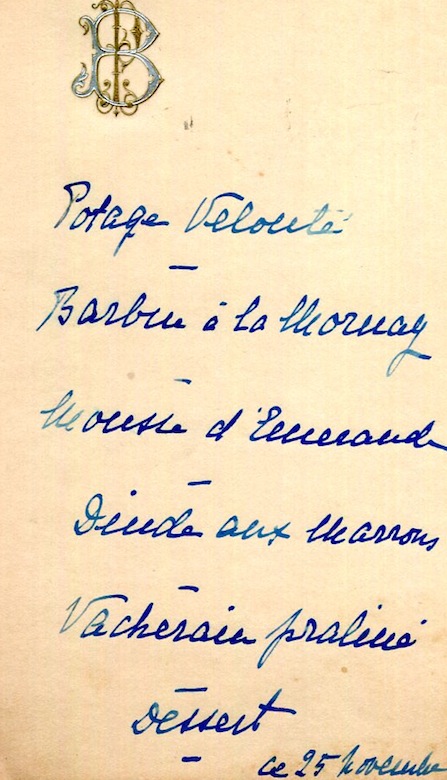 Potage Velouté
Barbue à la Mornay
Mousse d'Emeraude
Dinde aux Marrons
Vacherin praliné
Dessert
ce 25 novembre